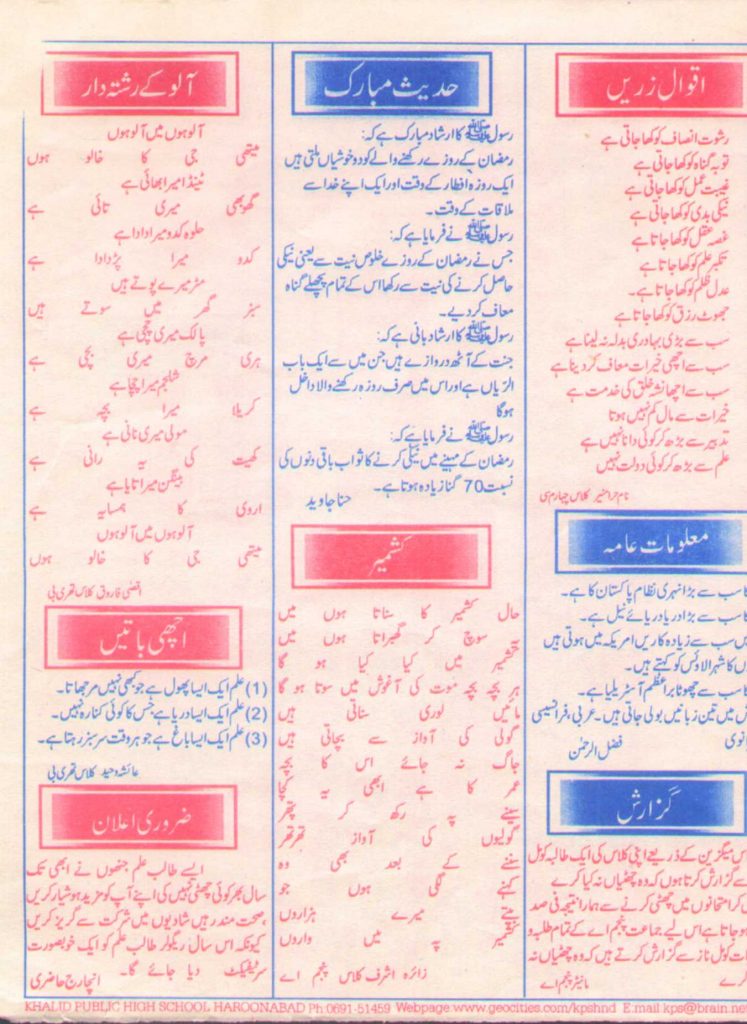 اقوال زریں
رشوت انصاف کو کھا جاتی ہے
توبہ گناہ کو کھا جاتی ہے
غیبت عمل کو کھا جاتی ہے
نیکی بدی کو کھا جاتی ہے
غصہ عقل کو کھا جاتا ہے
تکبر علم کو کھا جاتا ہے
عدل ظلم کو کھا جاتا ہے۔
جھوٹ رزق کو کھا جاتا ہے
سب سے بڑی بہادری بدلہ نہ لینا ہے
سب سے اچھی خیرات معاف کر دینا ہے
سب سے اچھا نشہ خلق کی خدمت ہے
خیرات سے مال کم نہیں ہوتا
تدبیر سے بڑھ کر کوئی دانا نہیں ہے
علم سے بڑھ کر کوئی دولت نہیں
کلاس چہارم سی
معلومات عامہ
کا سب سے بڑا نہری نظام پاکستان کا ہے۔
کا سب سے بڑا دریا دریائے نیل ہے۔
میں سب سے زیادہ کاریں امریکہ میں ہوتی ہیں
کا شہر لاؤس کو کہتے ہیں۔
کا سب سے چھوٹا براعظم آسٹریلیا ہے۔
میں تین زبانیں بولی جاتی ہیں۔ عربی، فرانسیسی
فضل الرحمٰن
گزارش
میگزین کے ذریعے اپنی کلاس کی ایک طالبہ کومل
سے گزارش کرتا ہوں کہ وہ چھٹیاں نہ کیا کرے
امتحانوں میں چھٹی کرنے سے ہمارا نتیجہ فی صد
ہو جاتا ہے اس لیے جماعت پنجم اے کے تمام طلبہ و
ناز سے گزارش کرتے ہیں کہ وہ چھٹیاں نہ
کرے مانیٹر پنجم اے
حدیث مبارک
رسول ﷺ کا ارشاد مبارک ہے کہ:
رمضان کے روزے رکھنے والے کو دو خوشیاں ملتی ہیں
ایک روزہ افطار کے وقت اور ایک اپنے خدا سے
ملاقات کے وقت۔
رسول ﷺ نے فرمایا ہے کہ:
جس نے رمضان کے روزے خلوص نیت سے یعنی نیکی
حاصل کرنے کی نیت سے رکھا اس کے تمام پچھلے گناہ
معاف کر دیے۔
رسول ﷺ کا ارشاد بانی ہے کہ:
جنت کے آٹھ دروازے ہیں جن میں سے ایک باب
الریاں ہے اور اس میں صرف روزہ رکھنے والا داخل
ہوگا
رسول ﷺ نے فرمایا ہے کہ:
رمضان کے مہینے میں نیکی کرنے کا ثواب باقی دنوں کی
نسبت 70 گنا زیادہ ہوتا ہے۔
حنا جاوید
کشمیر
حال کشمیر کا سناتا ہوں میں
سوچ کر گھبراتا ہوں میں
کشمیر میں کیا کیا ہو گا
ہر بچہ بچہ موت کی آغوش میں سوتا ہو گا
مائیں لوری سناتی ہیں
گولی کی آواز سے بچاتی ہیں
جاگ نہ جائے اس کا بچہ
عمر کا ہے ابھی یہ کچا
سینے پہ رکھ کر پتھر
گولیوں کی آواز تھرتھر
سننے کے بعد بھی وہ
کہنے لگی ہوں جو
بیٹے میرے ہزاروں
کشمیر پہ میں واروں
زائرہ اشرف کلاس پنجم اے
آلو کے رشتہ دار
آلو ہوں میں آلو ہوں
میتھی جی کا خالو ہوں
ٹینڈا میرا بھائی ہے
گھوبھی میری تائی ہے
حلوہ کدو میرا دادا ہے
کدو میرا پڑدادا ہے
مٹر میرے پوتے ہیں
سبز گھر میں سوتے ہیں
پالک میری چچی ہے
ہری مرچ میری بچی ہے
شلجم میرا چچا ہے
کریلا میرا بچہ ہے
مولی میری نانی ہے
کھیت کی یہ رانی ہے
بینگن میرا تایا ہے
اروی کا ہمسایہ ہے
آلو ہوں میں آلو ہوں
میتھی جی کا خالو ہوں
اقصٰی فاروق کلاس تھری بی
اچھی باتیں
(1) علم ایک ایسا پھول ہے جو کبھی نہیں مرجھاتا۔
(2) علم ایک ایسا دریا ہے جس کا کوئی کنارہ نہیں۔
(3) علم ایک ایسا باغ ہے جو ہر وقت سرسبز رہتا ہے۔
عائشہ وحید کلاس تھری بی
ضروری اعلان
ایسے طالب علم جنھوں نے ابھی تک
سال بھر کوئی چھٹی نہیں کی اپنے آپ کو مزید ہوشیار کریں
صحت مند رہیں شادیوں میں شرکت سے گریز کریں
کیونکہ اس سال ریگولر طالب علم کو ایک خوبصورت
سرٹیفکیٹ دیا جائے گا۔ انچارج حاضری
KHALID PUBLIC HIGH SCHOOL HAROONABAD Ph 0691-51459 Webpage.www.geocities.com/kpshnd E.mail kps@brain.ne